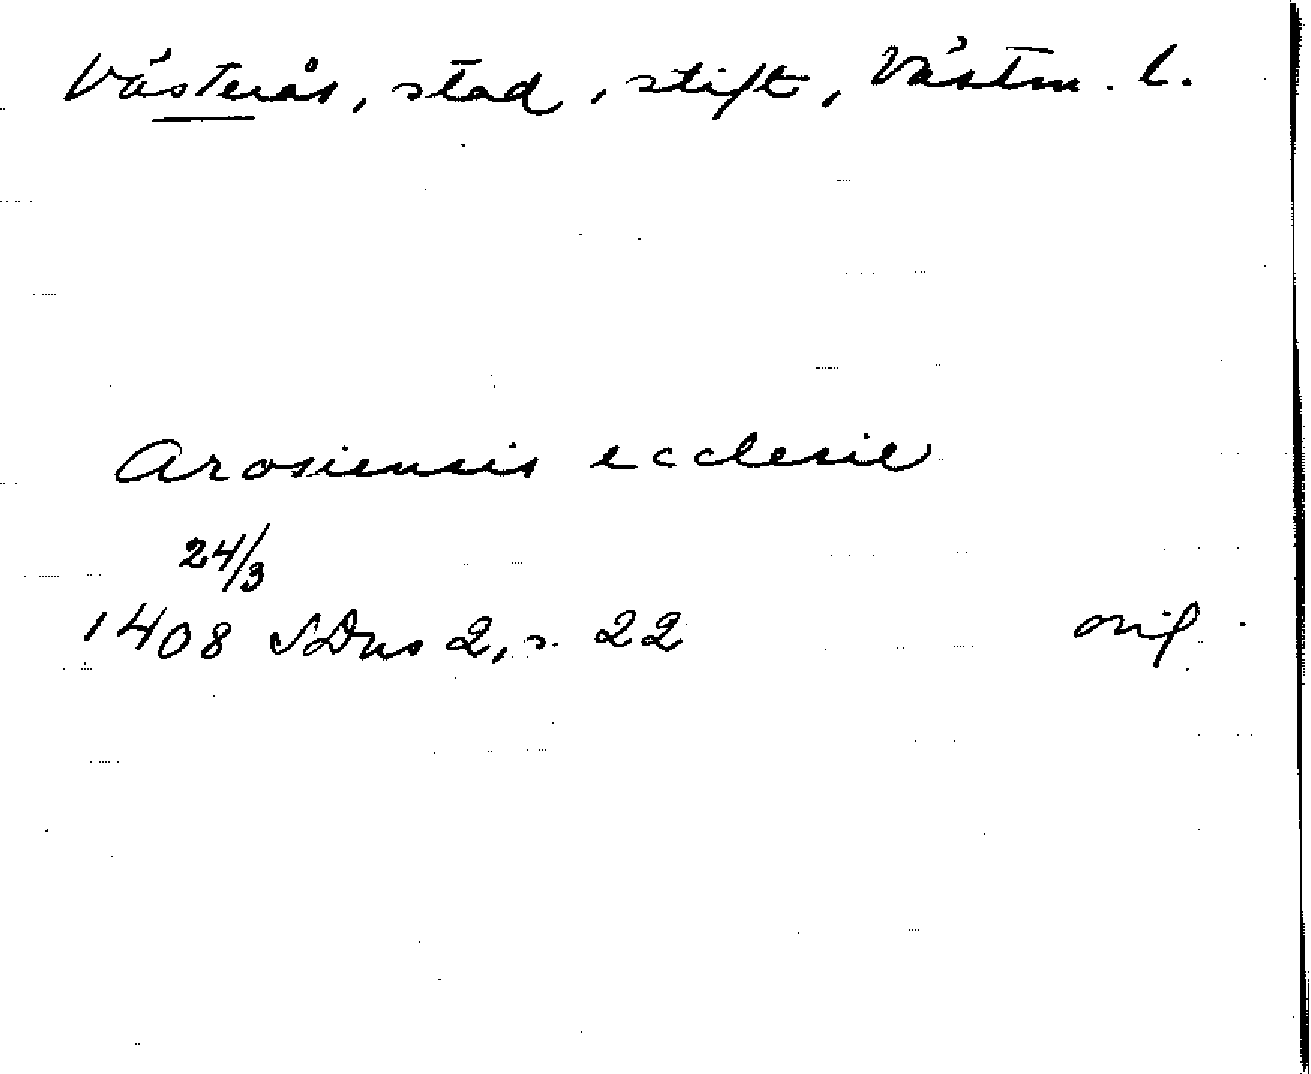 Västerås, stad, stift, Västm. l.
Arosiensis ecclesie
24/3
1408 SDns 2, s. 22 orig.